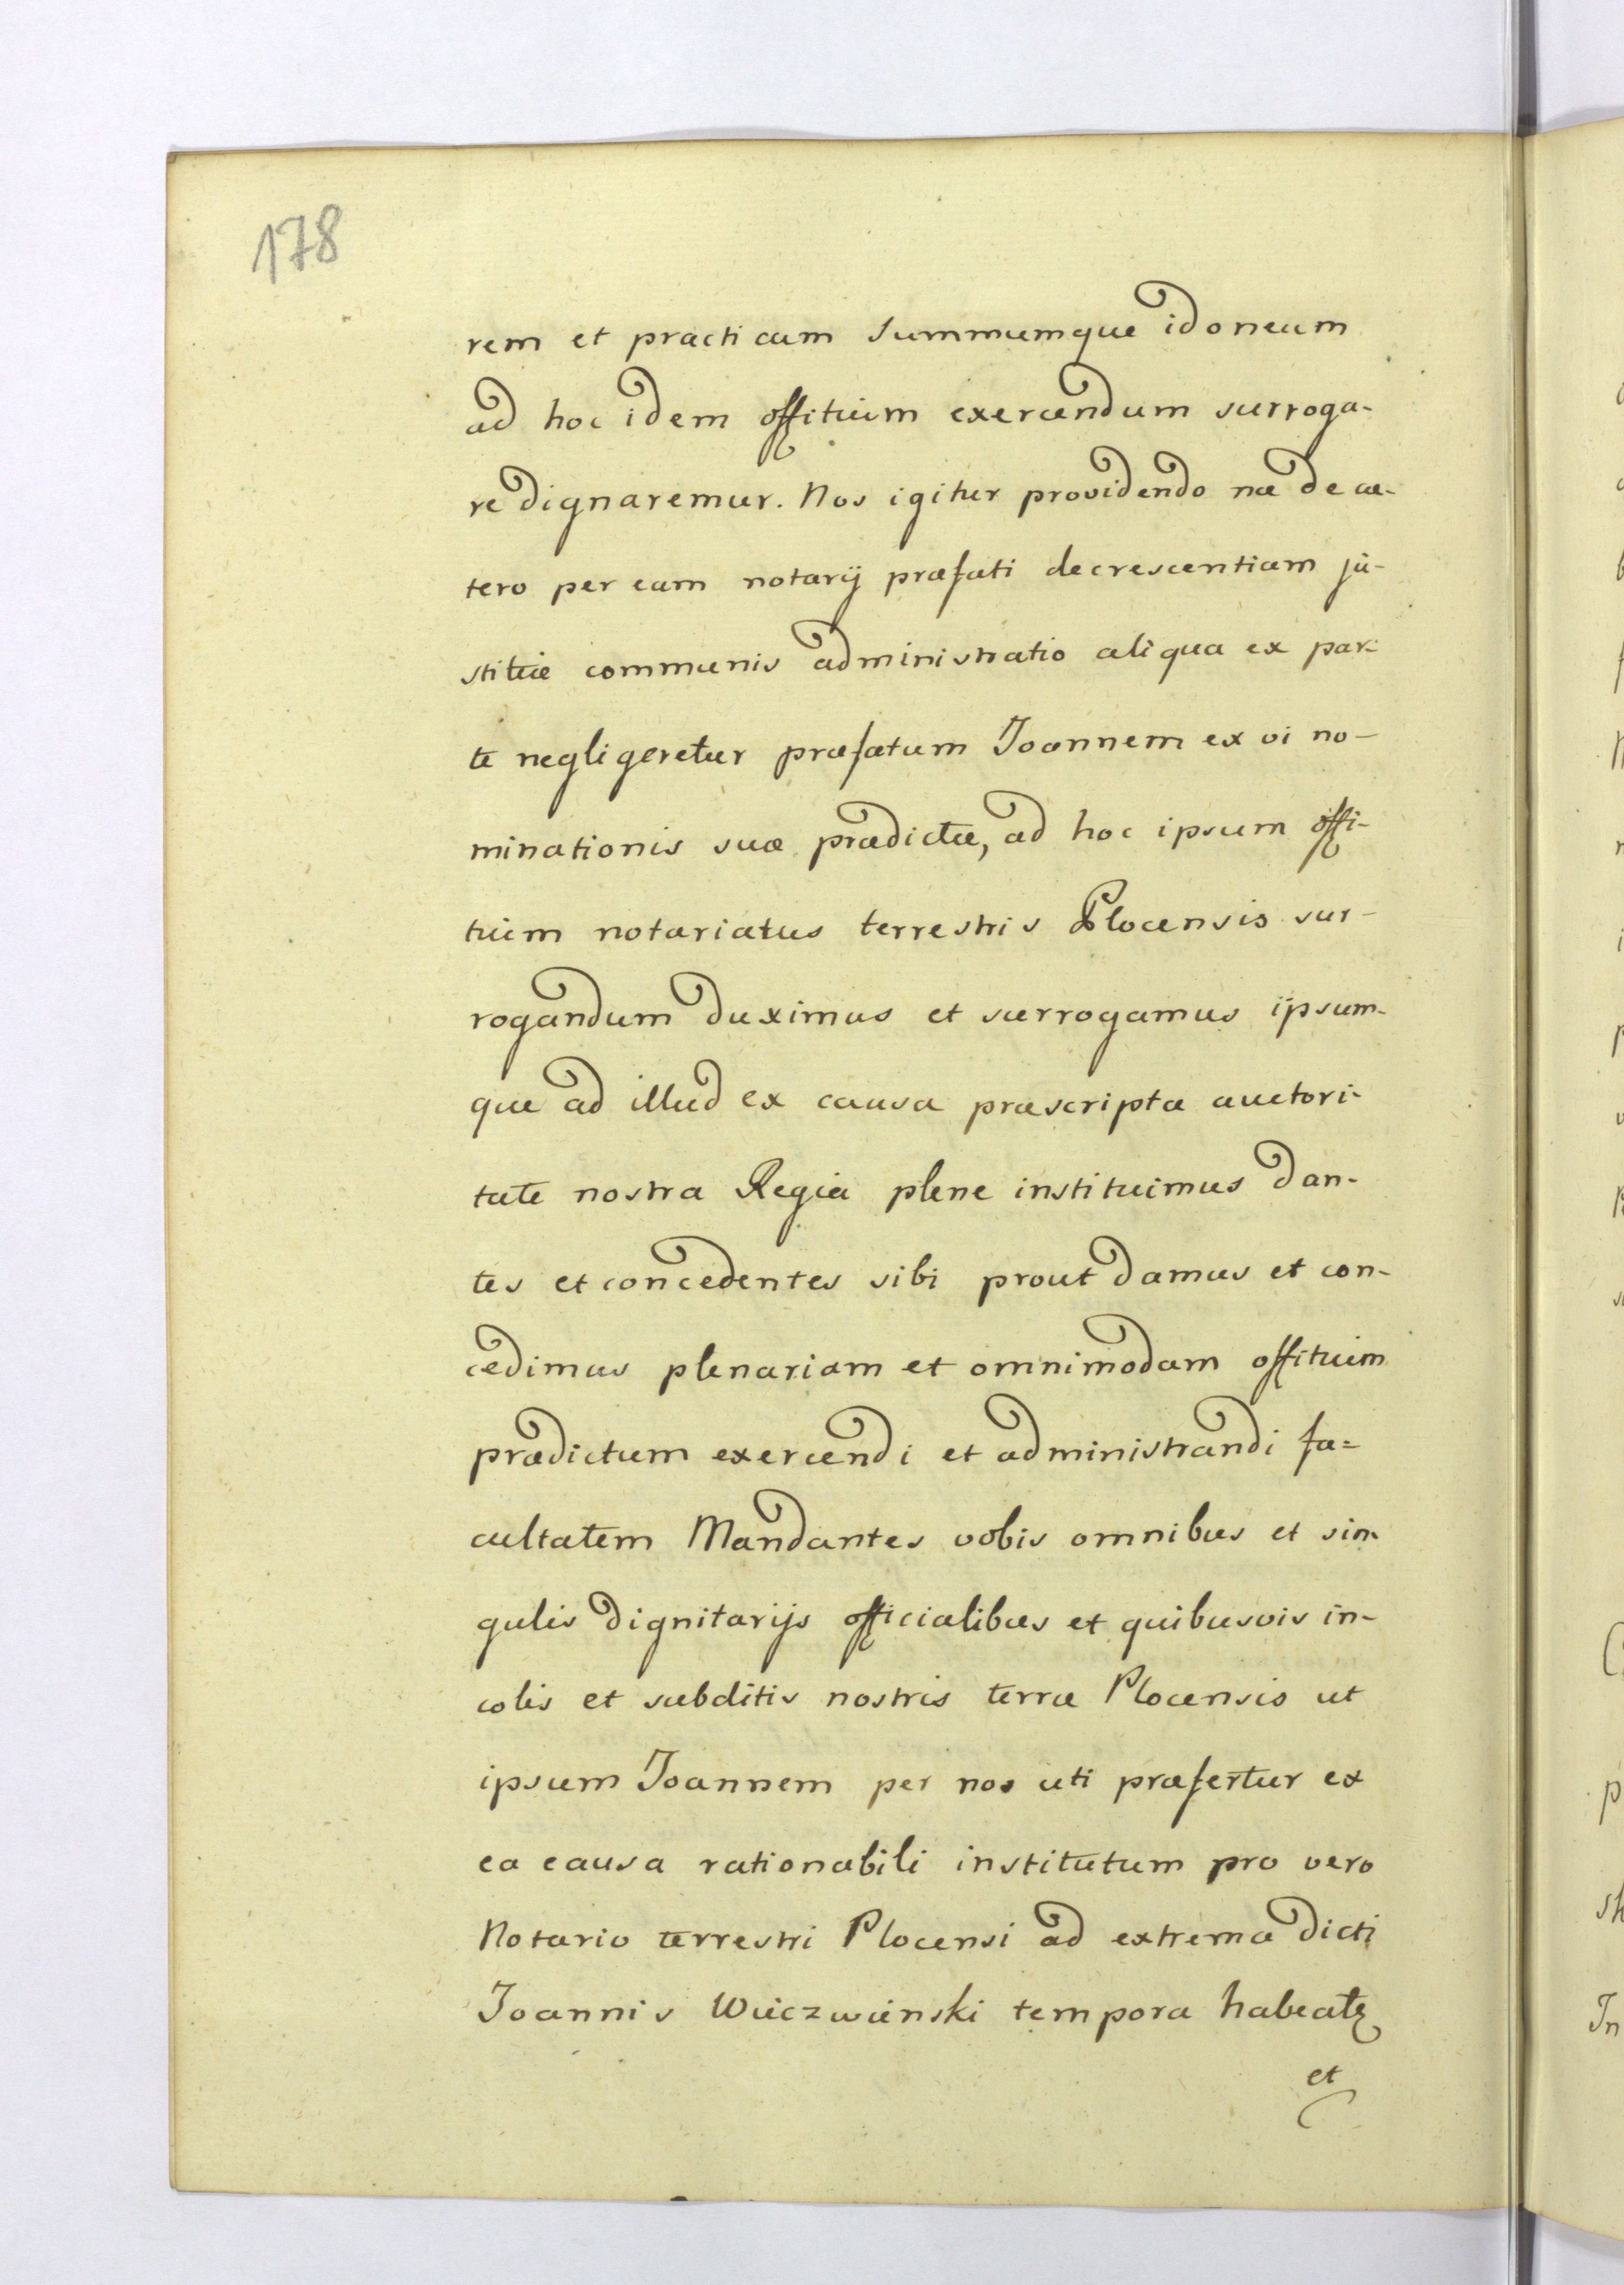 178
rem et practicum summumque idoneum
ad hoc idem offitium exercendum surroga-
re dignaremur. Nos igitur providendo næ de cæ-
tero per eam notarij præfati decrescentiam ju-
stitiæ communis administratio aliqua ex par-
te negligeretur præfatum Joannem ex vi no-
minationis suæ prædictæ, ad hoc ipsum offi-
tium notariatus terrestris Plocensis sur-
rogandum duximus et surrogamus ipsum-
que ad illud ex causa præscripta auctori-
tate nostra Regia plene instituimus dan-
tes et concedentes sibi prout damus et con-
cedimus plenariam et omnimodam offitium
prædictum exercendi et administrandi fa=
cultatem Mandantes vobis omnibus et sin-
gulis dignitarijs officialibus et quibusvis in-
colis et subditis nostris terræ Plocensis ut
ipsum Joannem per nos uti præfertur ex
ea causa rationabili institutum pro vero
Notario terrestri Plocensi ad extrema dicti
Joannis Wieczwienski tempora habeatę
et